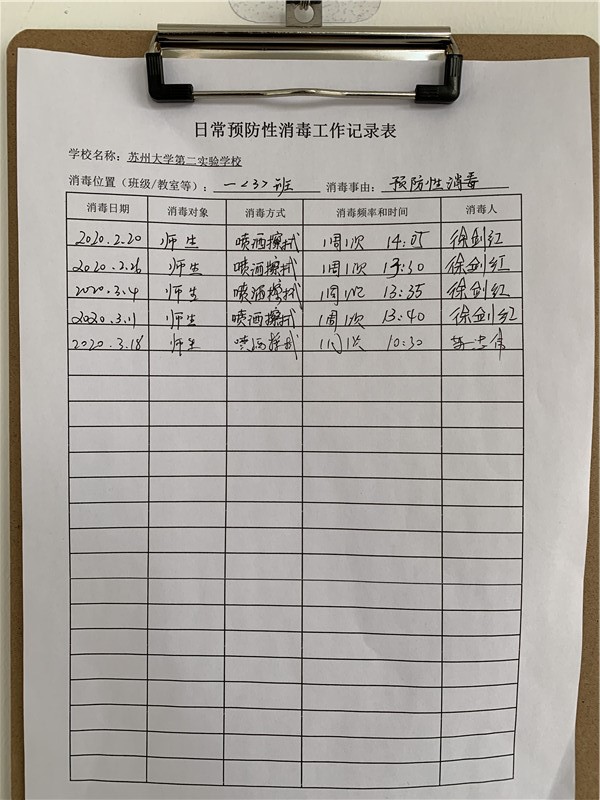 日常预防性消毒工作记录表
学校名称：苏州大学第二实验学校
消毒位置（班级/教室等）：一<3>班 消毒事由：预防性消毒
消毒日期 消毒对象 消毒方式 消毒频率和时间 消毒人
2020.2.20 师生 喷洒擦拭 1周1次 14:05 徐剑红
2020.2.26 师生 喷洒擦拭 1周1次 13:30 徐剑红
2020.3.4 师生 喷洒擦拭 1周1次 13:35 徐剑红
2020.3.11 师生 喷洒擦拭 1周1次 13:40 徐剑红
2020.3.18 师生 喷洒擦拭 1周1次 10:30